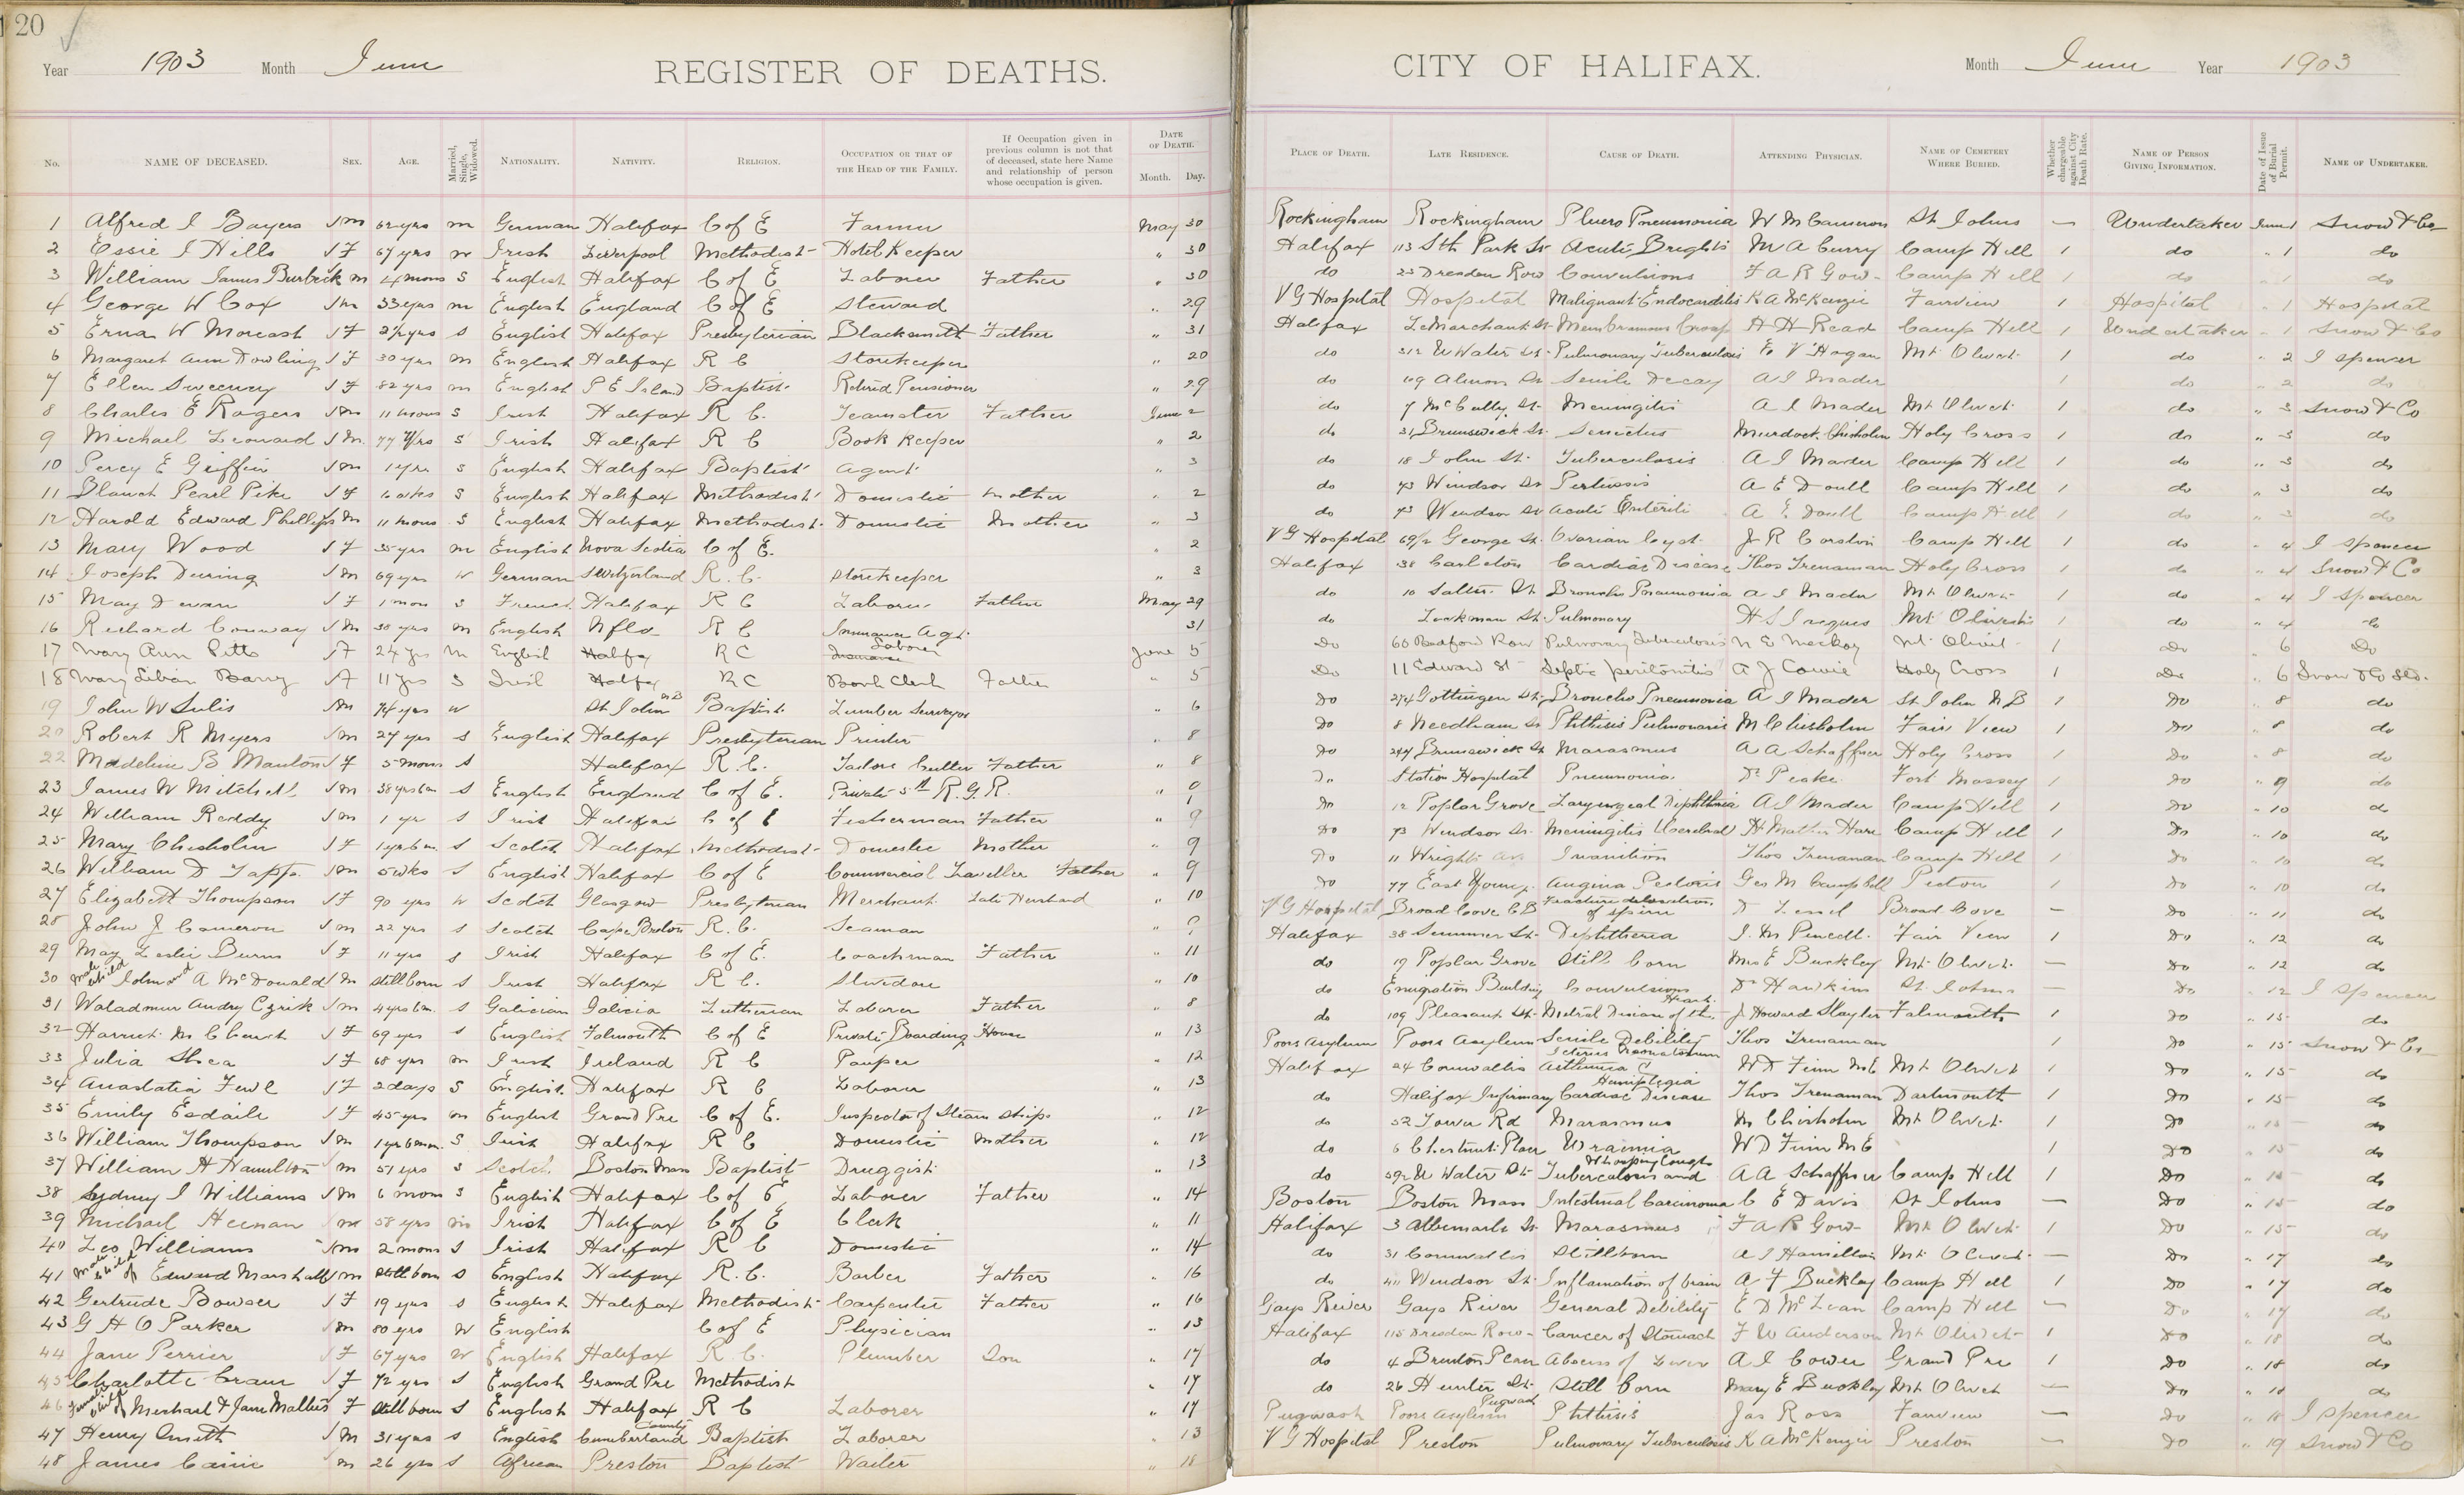 20
Year 1903 Month June REGISTER OF DEATHS. CITY OF HALIFAX. Month June Year 1903
No. NAME OF DECEASED. SEX. AGE. Married, Single, Widowed. NATIONALITY. NATIVITY. RELIGION. OCCUPATION OR THAT OF THE HEAD OF THE FAMILY. If Occupation given in previous column is not that of deceased, state here Name and relationship of person whose occupation is given. DATE OF DEATH. Month. Day. PLACE OF DEATH. LATE RESIDENCE. CAUSE OF DEATH. ATTENDING PHYSICIAN. NAME OF CEMETERY WHERE BURIED. Whether chargeable against City Death Rate. NAME OF PERSON GIVING INFORMATION. Date of Issue of Burial Permit. NAME OF UNDERTAKER.
1 Alfred J Bayers M 62 yrs m German Halifax C of E Farmer May 30 Rockingham Rockingham Pluero Pneumonia W M Cameron St Johns — Undertaker June 1 Snow & Co
2 Essie J Hills F 67 yrs Irish Liverpool Methodist Hotel Keeper " 30 Halifax 113 Sth Park St Acute Brights M A Curry Camp Hill 1 do " 1 do
3 William James Burbeck m 4 mons S English Halifax C of E Laborer Father " 30 do 23 Dresden Row Convulsions F A R Gow Camp Hill 1 do " 1 do
4 George W Cox m 33 yrs m English England C of E Steward " 29 V G Hospital Hospital Malignant Endocarditis K A McKenzie Fairview 1 Hospital " 1 Hospital
5 Erna W F 2½ yrs S English Halifax Presbyterian Blacksmith Father " 31 Halifax LeMarchant St Membranous Croup H H Read Camp Hill 1 Undertaker " 1 Snow & Co
6 Margaret Ann Dowling F 30 yrs m English Halifax R C Storekeeper " 20 do 312 U Water St Pulmonary Tuberculosis E V Hogan Mt Olivet 1 do " 2 J Spencer
7 Ellen Sweeney F 82 yrs m English P E Island Baptist Retired Pensioner " 29 do 109 Almon St Senile Decay A I Mader 1 do " 2 do
8 Charles E Rogers m 11 mons S Irish Halifax R C. Teamster Father June 2 do 7 McCully St Meningitis A I Mader Mt Olivet 1 do " 3 Snow & Co
9 Michael Leonard m 77 yrs S Irish Halifax R C Book Keeper " 2 do 31 Brunswick St Senectus Murdoch Chisholm Holy Cross 1 do " 3 do
10 Percy E Griffin m 1 yr S English Halifax Baptist Agent " 3 do 18 John St Tuberculosis A I Mader Camp Hill 1 do " 3 do
11 Blanch Pearl Pike F 6 wks S English Halifax Methodist Domestic Mother " 2 do 73 Windsor St Pertussis A E Doull Camp Hill 1 do " 3 do
12 Harold Edward Phillips m 11 mons S English Halifax Methodist Domestic Mother " 3 do 73 Windsor St Acute Enteritis A E Doull Camp Hill 1 do " 3 do
13 Mary Wood F 35 yrs m English Nova Scotia C of E. " 2 V G Hospital 69½ George St Ovarian Cyst J R Corston Camp Hill 1 do " 4 J Spencer
14 Joseph Deuring m 69 yrs W German Switzerland R. C. Storekeeper " 3 Halifax 38 Carleton Cardiac Disease Thos Trenaman Holy Cross 1 do " 4 Snow & Co
15 May Devan F 1 mon S French Halifax R C Laborer Father May 29 do 10 Salter St Broncho Pneumonia A I Mader Mt Olivet 1 do " 4 J Spencer
16 Richard Conway m 38 yrs m English Nfld R C Insurance Agt 31 do Lockman St Pulmonary H S Jaques Mt Olivet 1 do " 4 do
17 Mary Ann Pitts F 24 yrs m English Halifax R C Insurance Laborer June 5 Do 60 Bedford Row Pulmonary Tuberculosis N E MacKay Mt Olivet 1 Do " 6 Do
18 Mary Lilian Barry F 11 yrs S Irish Halifax R C Book Clerk Father " 5 Do 11 Edward St Septic peritonitis A J Cowie Holy Cross 1 Do " 6 Snow & Co Ltd.
19 John W Sulis m 74 yrs W St John NB Baptist Lumber Surveyor " 6 Do 274 Gottingen St Broncho Pneumonia A I Mader St John N B 1 Do " 8 do
20 Robert R Myers m 27 yrs S English Halifax Presbyterian Printer " 8 Do 8 Needham St Phthisis Pulmonaris M Chisholm Fair View 1 Do " 8 do
22 Madeline B Manton F 5 mons S Halifax R. C. Tailors Cutter Father " 8 Do 244 Brunswick St Marasmus A A Schaffner Holy Cross 1 Do " 8 do
23 James W Mitchell m 38 yrs 6 m S English England C of E. Private 5th R. G. R. " 9 Do Station Hospital Pneumonia Dr Peake Fort Massey 1 Do " 9 do
24 William Reddy m 1 yr S Irish Halifax C of E Fisherman Father " 9 Do 12 Poplar Grove Laryngeal Diphtheria A I Mader Camp Hill 1 Do " 10 do
25 Mary Chisholm F 1 yr 6 m S Scotch Halifax Methodist Domestic Mother " 9 Do 73 Windsor St Meningitis Cerebral H Mather Hare Camp Hill 1 Do " 10 do
26 William D Tapp m 5 wks S English Halifax C of E Commercial Traveller Father " 9 Do 11 Wrights Av Inanition Thos Trenaman Camp Hill 1 Do " 10 do
27 Elizabeth Thompson F 90 yrs W Scotch Glasgow Presbyterian Merchant Late Husband " 10 Do 77 East Young Angina Pectoris Geo M Campbell Pictou 1 Do " 10 do
28 John J Cameron m 22 yrs S Scotch Cape Breton R. C. Seaman " 9 V G Hospital Broad Cove C B Fracture dislocation of spine D Broad Cove — Do " 11 do
29 May Leslie Burns F 11 yrs S Irish Halifax C of E. Coachman Father " 11 Halifax 38 Summer St Diphtheria Fair View 1 Do " 12 do
30 male child John and A McDonald m Still born S Irish Halifax R C. Stevedore " 10 do 19 Poplar Grove Still born Mrs E Buckley Mt Olivet — Do " 12 do
31 Waladmur Andry Czrik m 4 yrs 6 m S Galician Galicia Lutheran Laborer Father " 8 do Emigration Building Convulsions Dr Hawkins St Johns — Do " 12 J Spencer
32 Harriet M Church F 69 yrs S English Falmouth C of E Private Boarding House " 13 do 109 Pleasant St Mitral Disease of the Heart J. Howard Slayter Falmouth 1 Do " 15 do
33 Julia Shea F 68 yrs m Irish Ireland R C Pauper " 12 Poors Asylum Poors Asylum Senile Debility Thos Trenaman 1 Do " 15 Snow & Co
34 Anastatia F 2 days S English Halifax R C Laborer " 13 Halifax 24 Cornwallis Icterus Neonatorum W D Finn M E Mt Olivet 1 Do " 15 do
35 Emily Esdaile F 45 yrs m English Grand Pre C of E. Inspector of Steam Ships " 12 do Halifax Infirmary Cardiac Disease Hemiplegia Thos Trenaman Dartmouth 1 Do " 15 do
36 William Thompson m 1 yr 6 mon S Irish Halifax R C Domestic Mother " 12 do 52 Tower Rd Marasmus M Chisholm Mt Olivet 1 Do " 15 do
37 William H Hamilton m 51 yrs S Scotch Boston Mass Baptist Druggist " 13 do 6 Chestnut Place Uraimia W D Finn M E 1 Do " 15 do
38 Sydney J Williams m 6 mons S English Halifax C of E Laborer Father " 14 do 592 U Water St Tuberculosis and Whooping Cough A A Schaffner Camp Hill 1 Do " 15 do
39 Michael Heenan m 58 yrs m Irish Halifax C of E Clerk " 11 Boston Boston Mass Intestinal Carcinoma C E Davis St Johns — Do " 15 do
40 Leo Williams m 2 mons S Irish Halifax R C Domestic " 14 Halifax 3 Albemarle St Marasmus F A R Gow Mt Olivet 1 Do " 15 do
41 Male Child of Edward Marshall m Still born S English Halifax R. C. Barber Father " 16 do 31 Cornwallis Stillborn A I Hamilton Mt Olivet — Do " 17 do
42 Gertrude Bowser F 19 yrs S English Halifax Methodist Carpenter Father " 16 do 411 Windsor St Inflamation of brain A F Buckley Camp Hill 1 Do " 17 do
43 G H O Parker m 80 yrs W English C of E Physician " 13 Gays River Gays River General Debility E D McLean Camp Hill — Do " 17 do
44 Jane Perrier F 67 yrs W English Halifax R. C. Plumber Son " 17 Halifax 115 Dresden Row Cancer of Stomach F W Anderson Mt Olivet 1 Do " 18 do
45 Charlotte Crane F 72 yrs S English Grand Pre Methodist " 17 do 4 Brenton Place Abscess of Liver A J Cowie Grand Pre 1 Do " 18 do
46 Female Child of Michael & Jane Mallets F Still born S English Halifax R C Laborer " 17 do 26 Hunter St Still born Mary E Buckley Mt Olivet — Do " 18 do
47 Henry Smith m 31 yrs S English Cumberland County Baptist Laborer " 13 Pugwash Poors Asylum Pugwash Phthisis Jas Ross Fairview — Do " 18 J Spencer
48 James Cain m 26 yrs S African Preston Baptist Waiter " 18 V G Hospital Preston Pulmonary Tuberculosis K A McKenzie Preston — Do " 19 Snow & Co